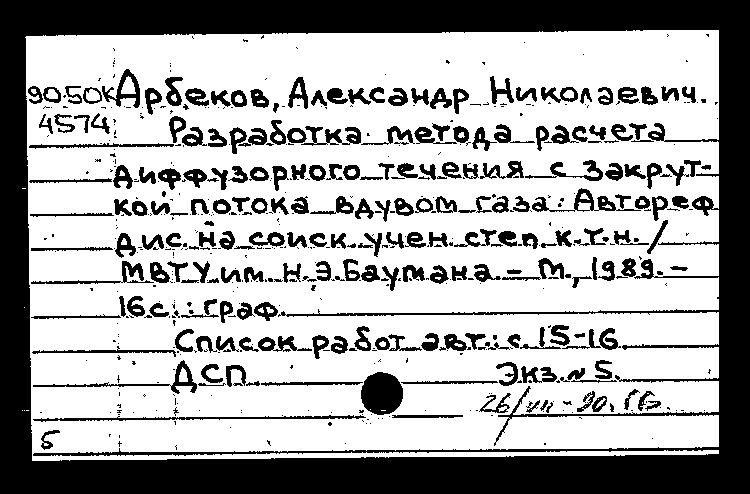 90.50К Арбеков, Александр Николаевич.
4574 Разработка метода расчета
диффузорного течения с закрут-
кой потока вдувом газа: Автореф
дис. на соиск. учен. степ. к.т.н. /
МВТУ им. Н.Э. Баумана. – М., 1989. –
16 с.: граф.
Список работ авт.: с. 15-16.
ДСП. Экз. № 5.
26/VII-90. ГБ.
Б